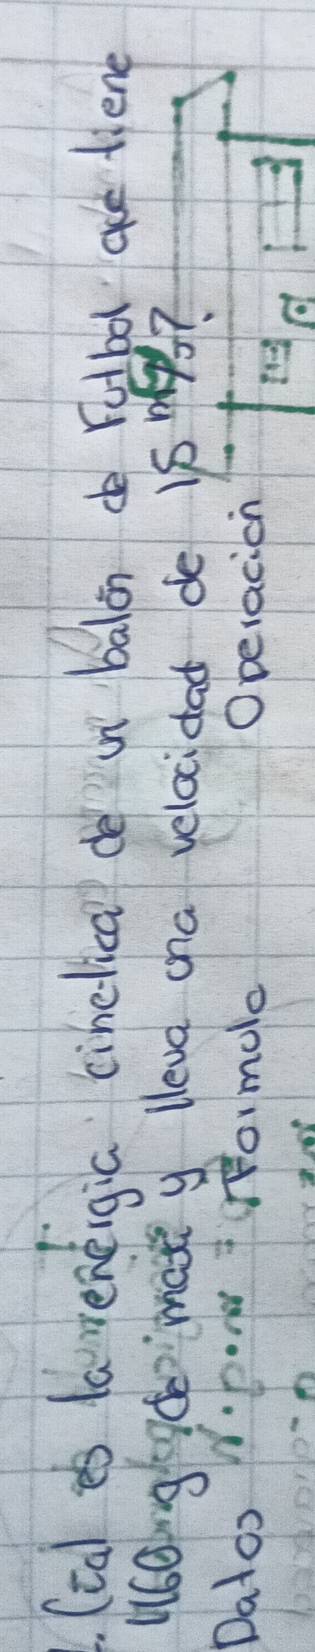 Cual es la energia cinetica de un balón de Futbol que tiene
460 g de masa y lleva una velocidad de 15 m/s?
Datos Formula Operación